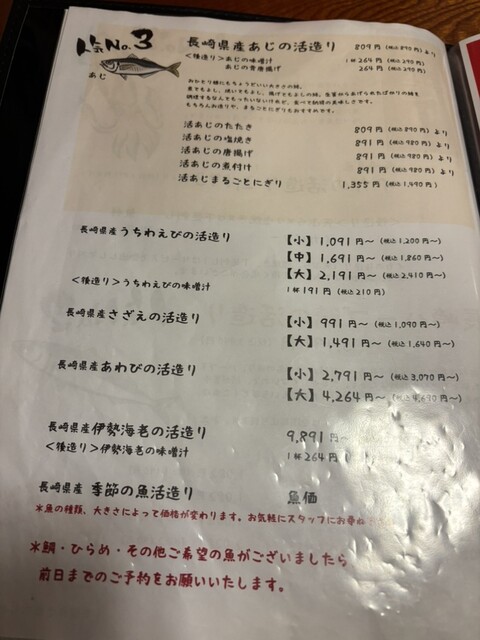 人気No.3
あじ
長崎県産あじの活造り 809円(税込890円)より
<後造り>あじの味噌汁 1杯264円(税込290円)
あじの骨唐揚げ 264円(税込290円)
おひとり様にもちょうどいい大きさの鯵。
煮てもよし、焼いてもよし、揚げてもよしの鯵。
もちろんお造りや、まるごとにぎりもおすすめです。
活あじのたたき 809円(税込890円)より
活あじの塩焼き 891円(税込980円)より
活あじの唐揚げ 891円(税込980円)より
活あじの煮付け 891円(税込980円)より
活あじまるごとにぎり 1,355円(税込1,490円)
長崎県産うちわえびの活造り 【小】1,091円〜(税込1,200円〜)
【中】1,691円〜(税込1,860円〜)
【大】2,191円〜(税込2,410円〜)
<後造り>うちわえびの味噌汁 1杯191円(税込210円)
長崎県産さざえの活造り 【小】991円〜(税込1,090円〜)
【大】1,491円〜(税込1,640円〜)
長崎県産あわびの活造り 【小】2,791円〜(税込3,070円〜)
【大】4,264円〜(税込4,690円〜)
長崎県産伊勢海老の活造り 9,891円〜
<後造り>伊勢海老の味噌汁 1杯264円
長崎県産 季節の魚活造り 魚価
*魚の種類、大きさによって価格が変わります。お気軽にスタッフにお尋ね
*鯛・ひらめ・その他ご希望の魚がございましたら
前日までのご予約をお願いいたします。